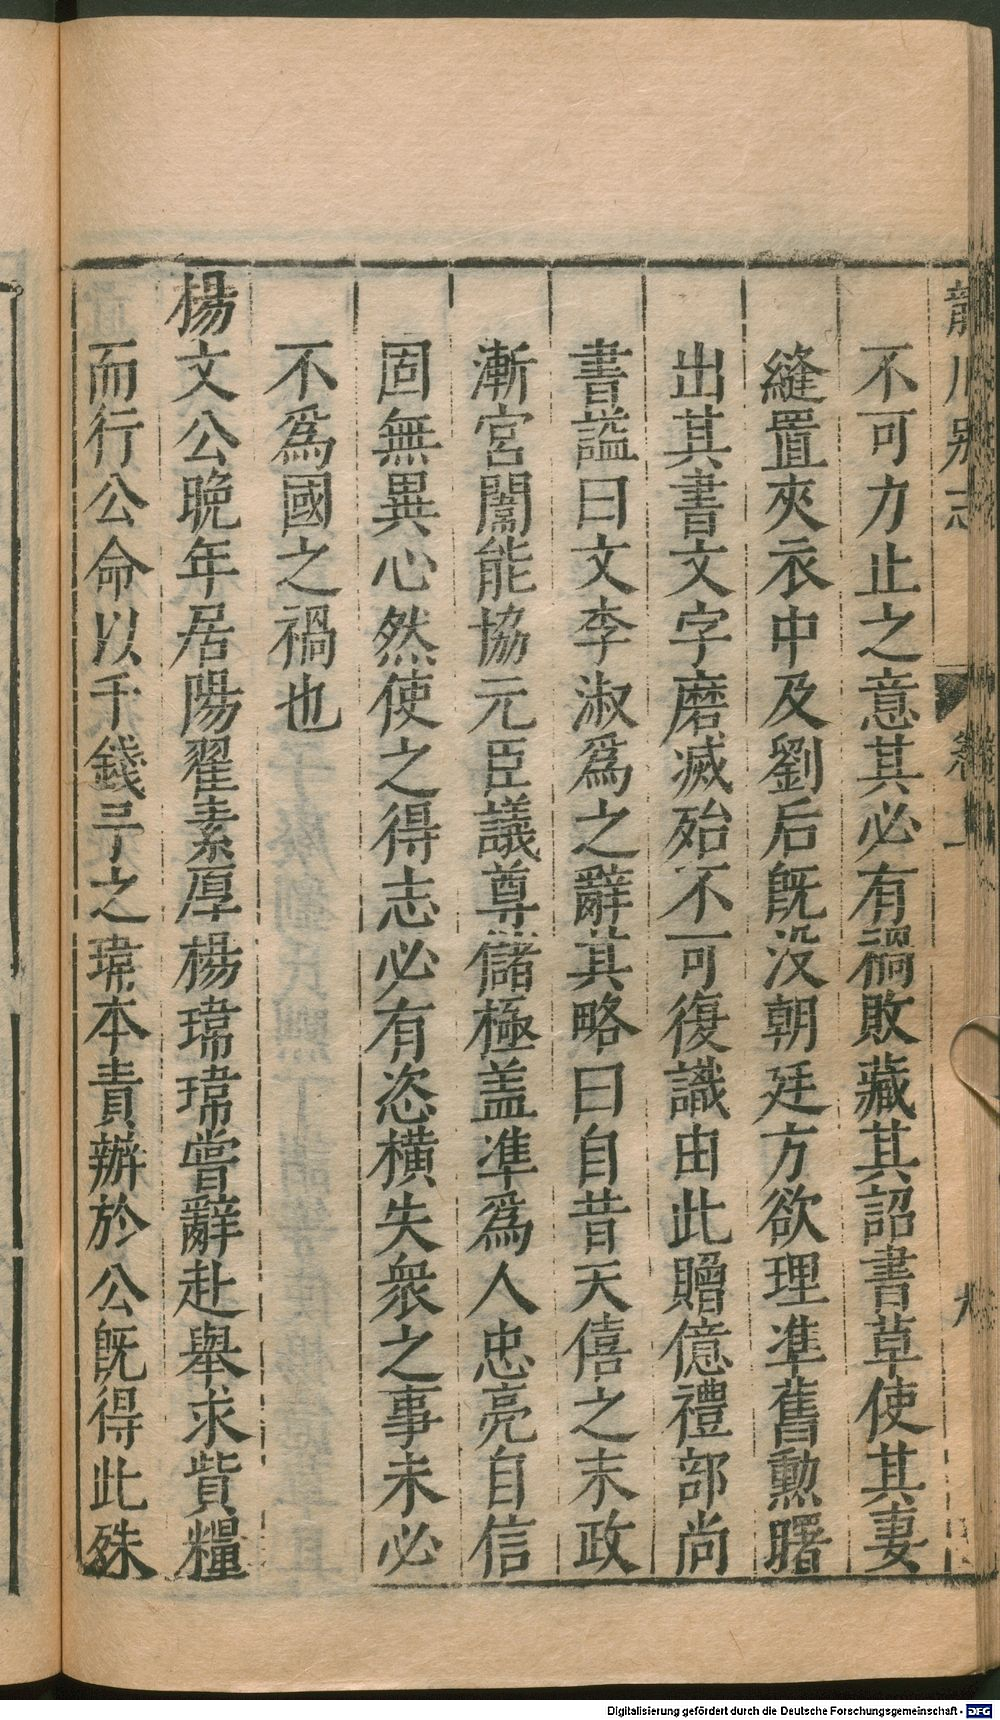 龍川别志
不可力止之意其必有禍敗藏其詔書草使其妻
縫置夾衣中及劉后旣没朝廷方欲理凖舊勲曙
出其書文字磨滅殆不可復識由此贈億禮部尚
書謚曰文李淑爲之辭其略曰自昔天僖之末政
漸宮闈能協元臣議尊儲極盖凖爲人忠亮自信
固無異心然使之得志必有恣横失衆之事未必
不爲國之禍也
楊文公晩年居陽翟素厚楊瑋瑋嘗辭赴舉求貲糧
而行公命以千錢㝵之瑋本責辦於公旣得此殊
Digitalisierung gefördert durch die Deutsche Forschungsgemeinschaft - DFG